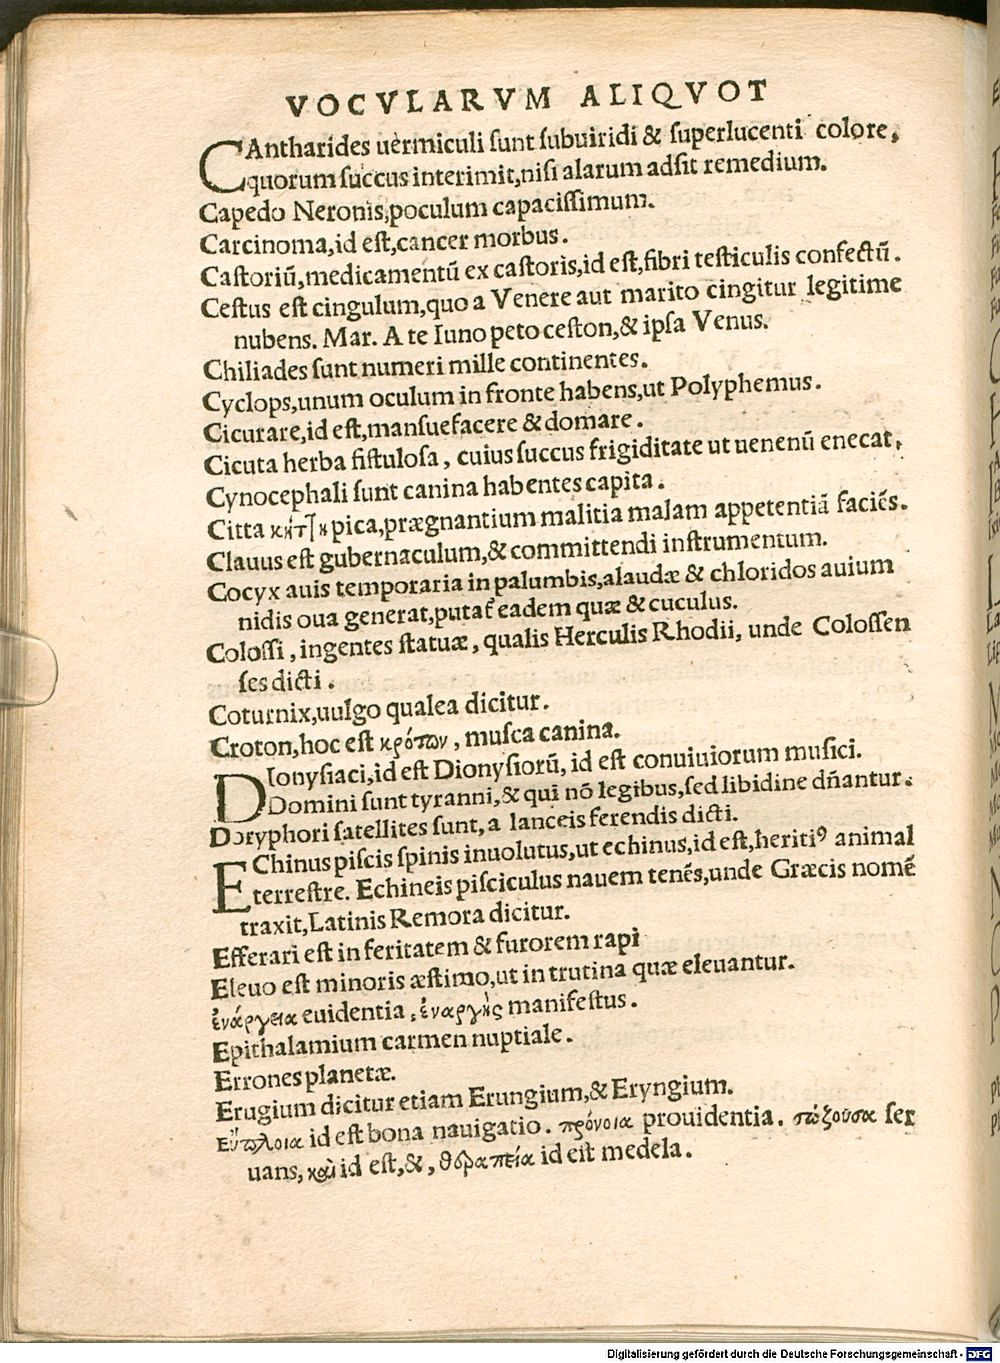 VOCVLARVM ALIQVOT
CAntharides uermiculi sunt subuiridi & superlucenti colore,
quorum succus interimit,nisi alarum adsit remedium.
Capedo Neronis,poculum capacissimum.
Carcinoma,id est,cancer morbus.
Castoriū,medicamentū ex castoris,id est,fibri testiculis confectū.
Cestus est cingulum,quo a Venere aut marito cingitur legitime
nubens. Mar. A te Iuno peto ceston,& ipsa Venus.
Chiliades sunt numeri mille continentes.
Cyclops,unum oculum in fronte habens,ut Polyphemus.
Cicurare,id est,mansuefacere & domare.
Cicuta herba fistulosa, cuius succus frigiditate ut uenenū enecat,
Cynocephali sunt canina habentes capita.
Citta κήτ]η pica,prægnantium malitia malam appetentiā faciēs.
Clauus est gubernaculum,& committendi instrumentum.
Cocyx auis temporaria in palumbis,alaudæ & chloridos auium
nidis oua generat,putat̃ eadem quæ & cuculus.
Colossi, ingentes statuæ, qualis Herculis Rhodii, unde Colossen
ses dicti.
Coturnix,uulgo qualea dicitur.
Croton,hoc est κρότων, musca canina.
DIonysiaci,id est Dionysiorū, id est conuiuiorum musici.
Domini sunt tyranni,& qui nō legibus,sed libidine dñantur.
Doryphori satellites sunt,a lanceis ferendis dicti.
EChinus piscis spinis inuolutus,ut echinus,id est,heritiꝰ animal
terrestre. Echineis pisciculus nauem tenēs,unde Græcis nomē
traxit,Latinis Remora dicitur.
Efferari est in feritatem & furorem rapi
Eleuo est minoris æstimo,ut in trutina quæ eleuantur.
ἐνάργεια euidentia, ἐναργὴς manifestus.
Epithalamium carmen nuptiale.
Errones planetæ.
Erugium dicitur etiam Erungium,& Eryngium.
Εὔπλοια id est bona nauigatio. πρόνοια prouidentia. σώζουσα ser
uans, καὶ id est,&, θεραπεία id est medela.
Digitalisierung gefördert durch die Deutsche Forschungsgemeinschaft - DFG